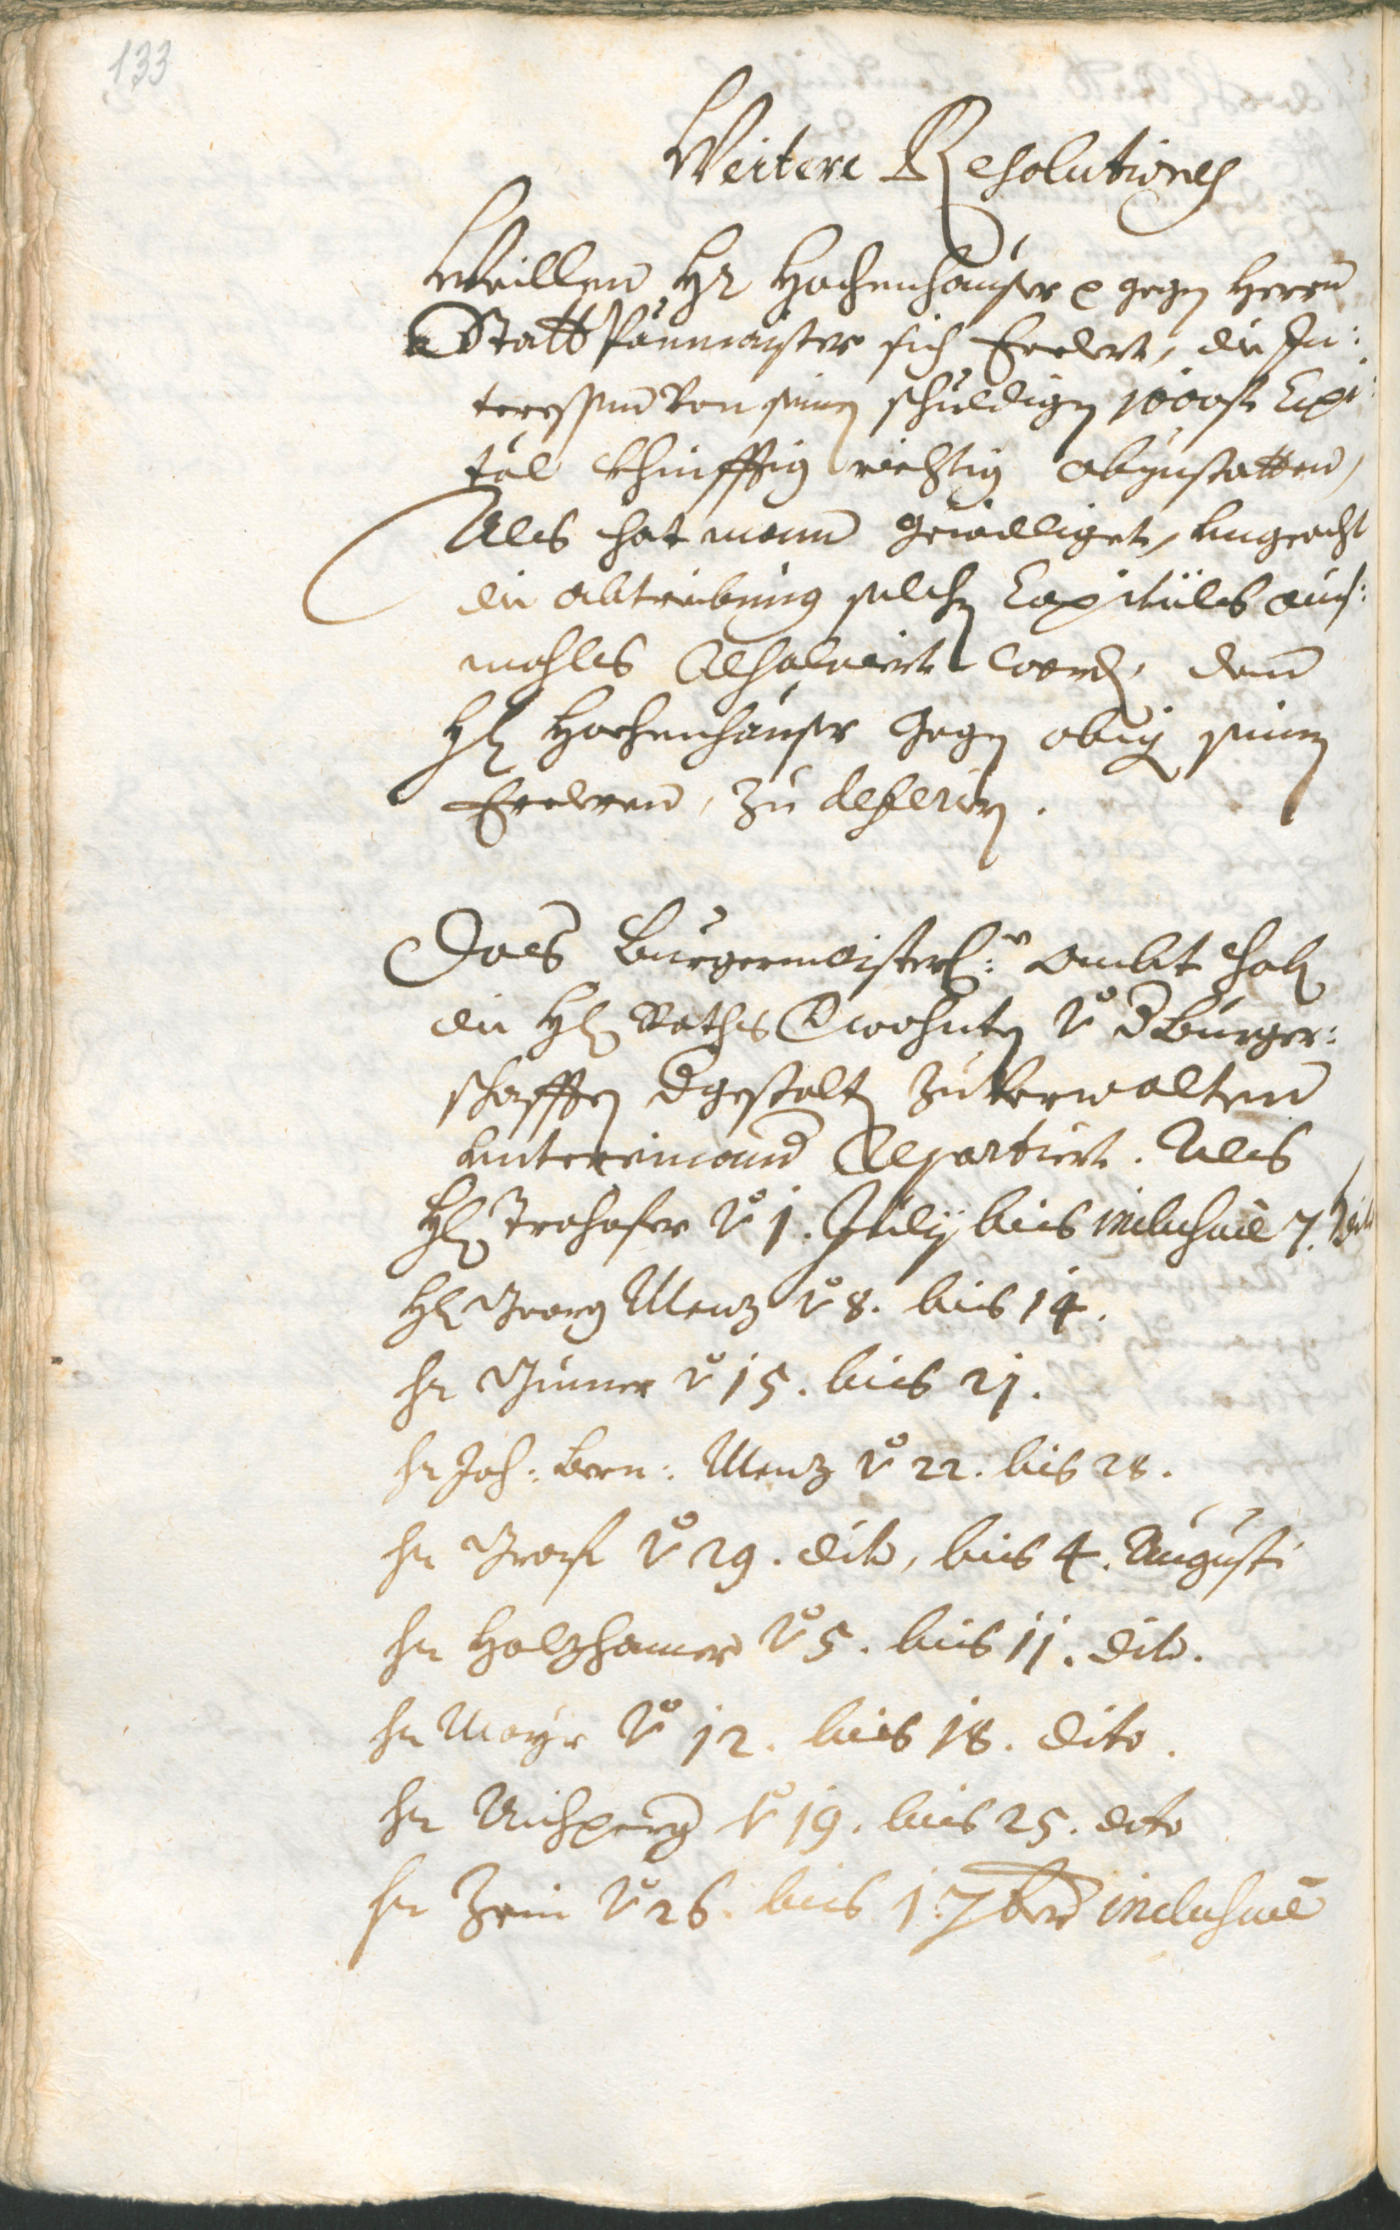 133
Weitere Resolutiones
Weillen Hr Hochenhauser gegen Herrn
Statt Paumaister sich Erclert, die In:
teressen von seinen schuldigen 1000 fl Capi:
tal khinfftig richtig abzustatten,
Als hat mann gewilliget, Ungeacht
die abtreibung solches Capituls aus:
mahls resolviert worden, dem
Hr Hochenhauser gegen obig seinen
Erclären, zu deferiern.
Das Burgermeister: Ambt haben
die Hr Raths Verwohnten Vo der Burger:
schafften dergestalten zu verwalten
untereinander repartiert. Als
Hr Trohofer Vo 1. July bis inclusive 7. dito
Hr Georg Menz Vo 8. bis 14.
Hr Gumer Vo 15. bis 21.
Hr Joh: Bern: Menz Vo 22. bis 28.
Hr Graf Vo 29. dito, bis 4. Augusti
Hr Holzhamer Vo 5. bis 11. dito.
Hr Mayr Vo 12. bis 18. dito.
Hr Aichperg Vo 19. bis 25. dito
Hr Zein Vo 26. bis 1. 7ber inclusive